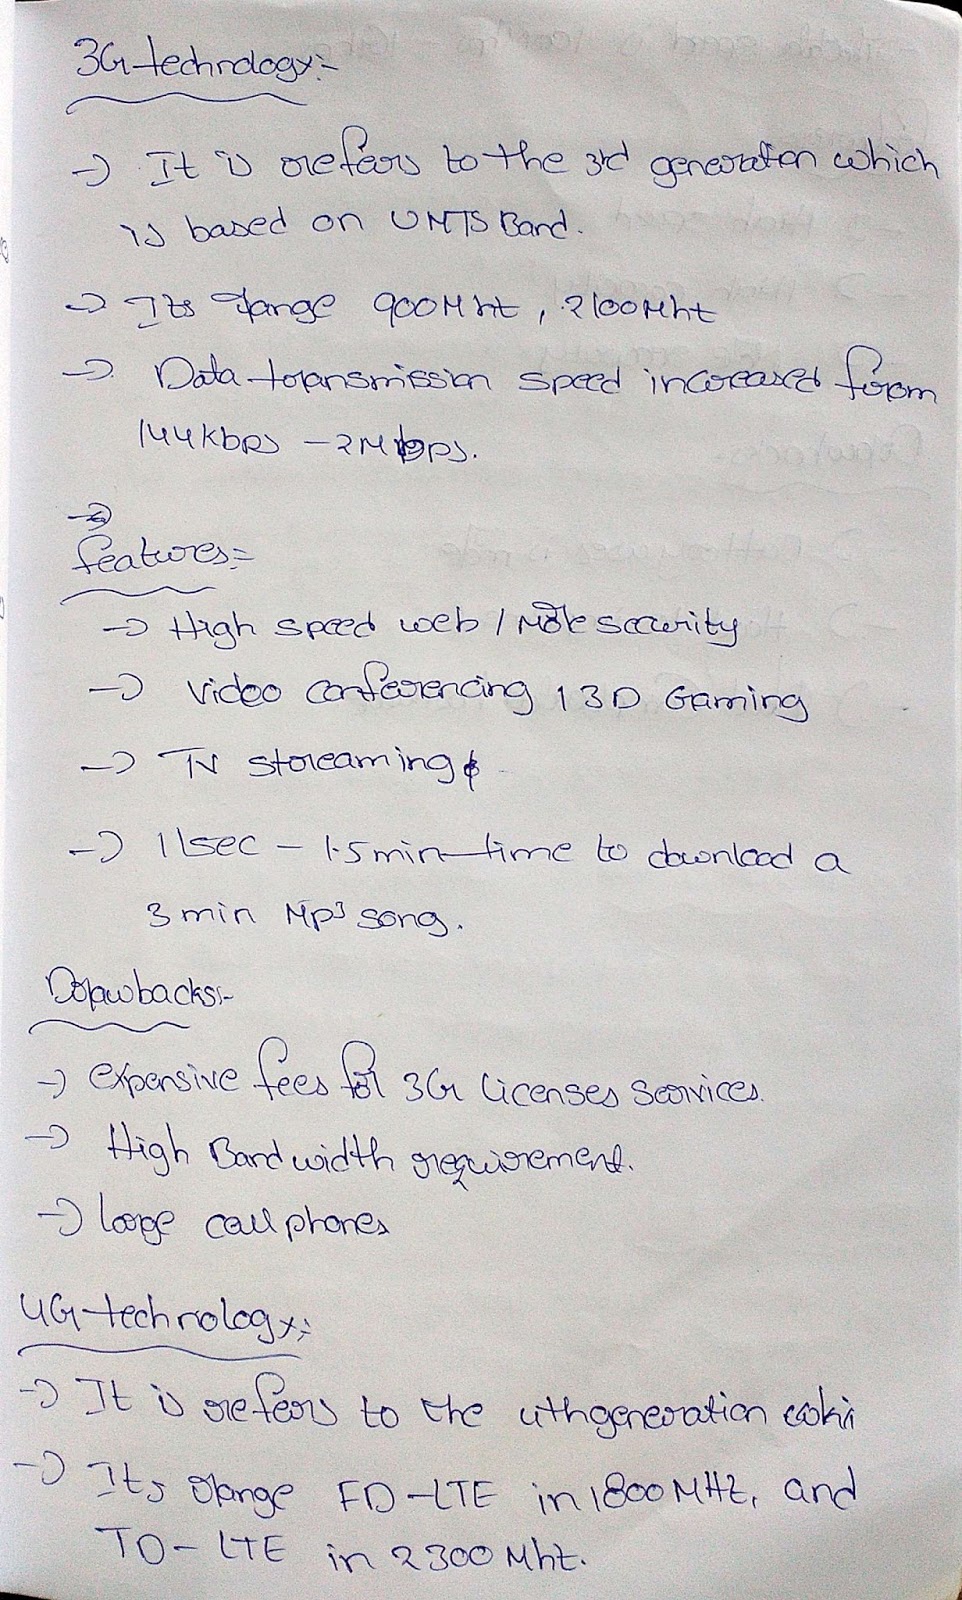 3G technology:-
→ It is refers to the 3rd generation which
is based on UMTS Band.
→ Its range 900Mht, 2100Mht
→ Data transmission speed increased from
144kbps - 2Mbps.
→
features:-
→ High speed web / More security
→ Video conferencing / 3D Gaming
→ TV streaming
→ 11sec - 1.5 min time to download a
3 min Mp3 song.
Drawbacks:-
→ expensive fees for 3G licenses services.
→ High Bandwidth requirement.
→ large cell phones
4G technology:-
→ It is refers to the 4th generation
→ Its range FD-LTE in 1800MHz, and
TD-LTE in 2300Mht.